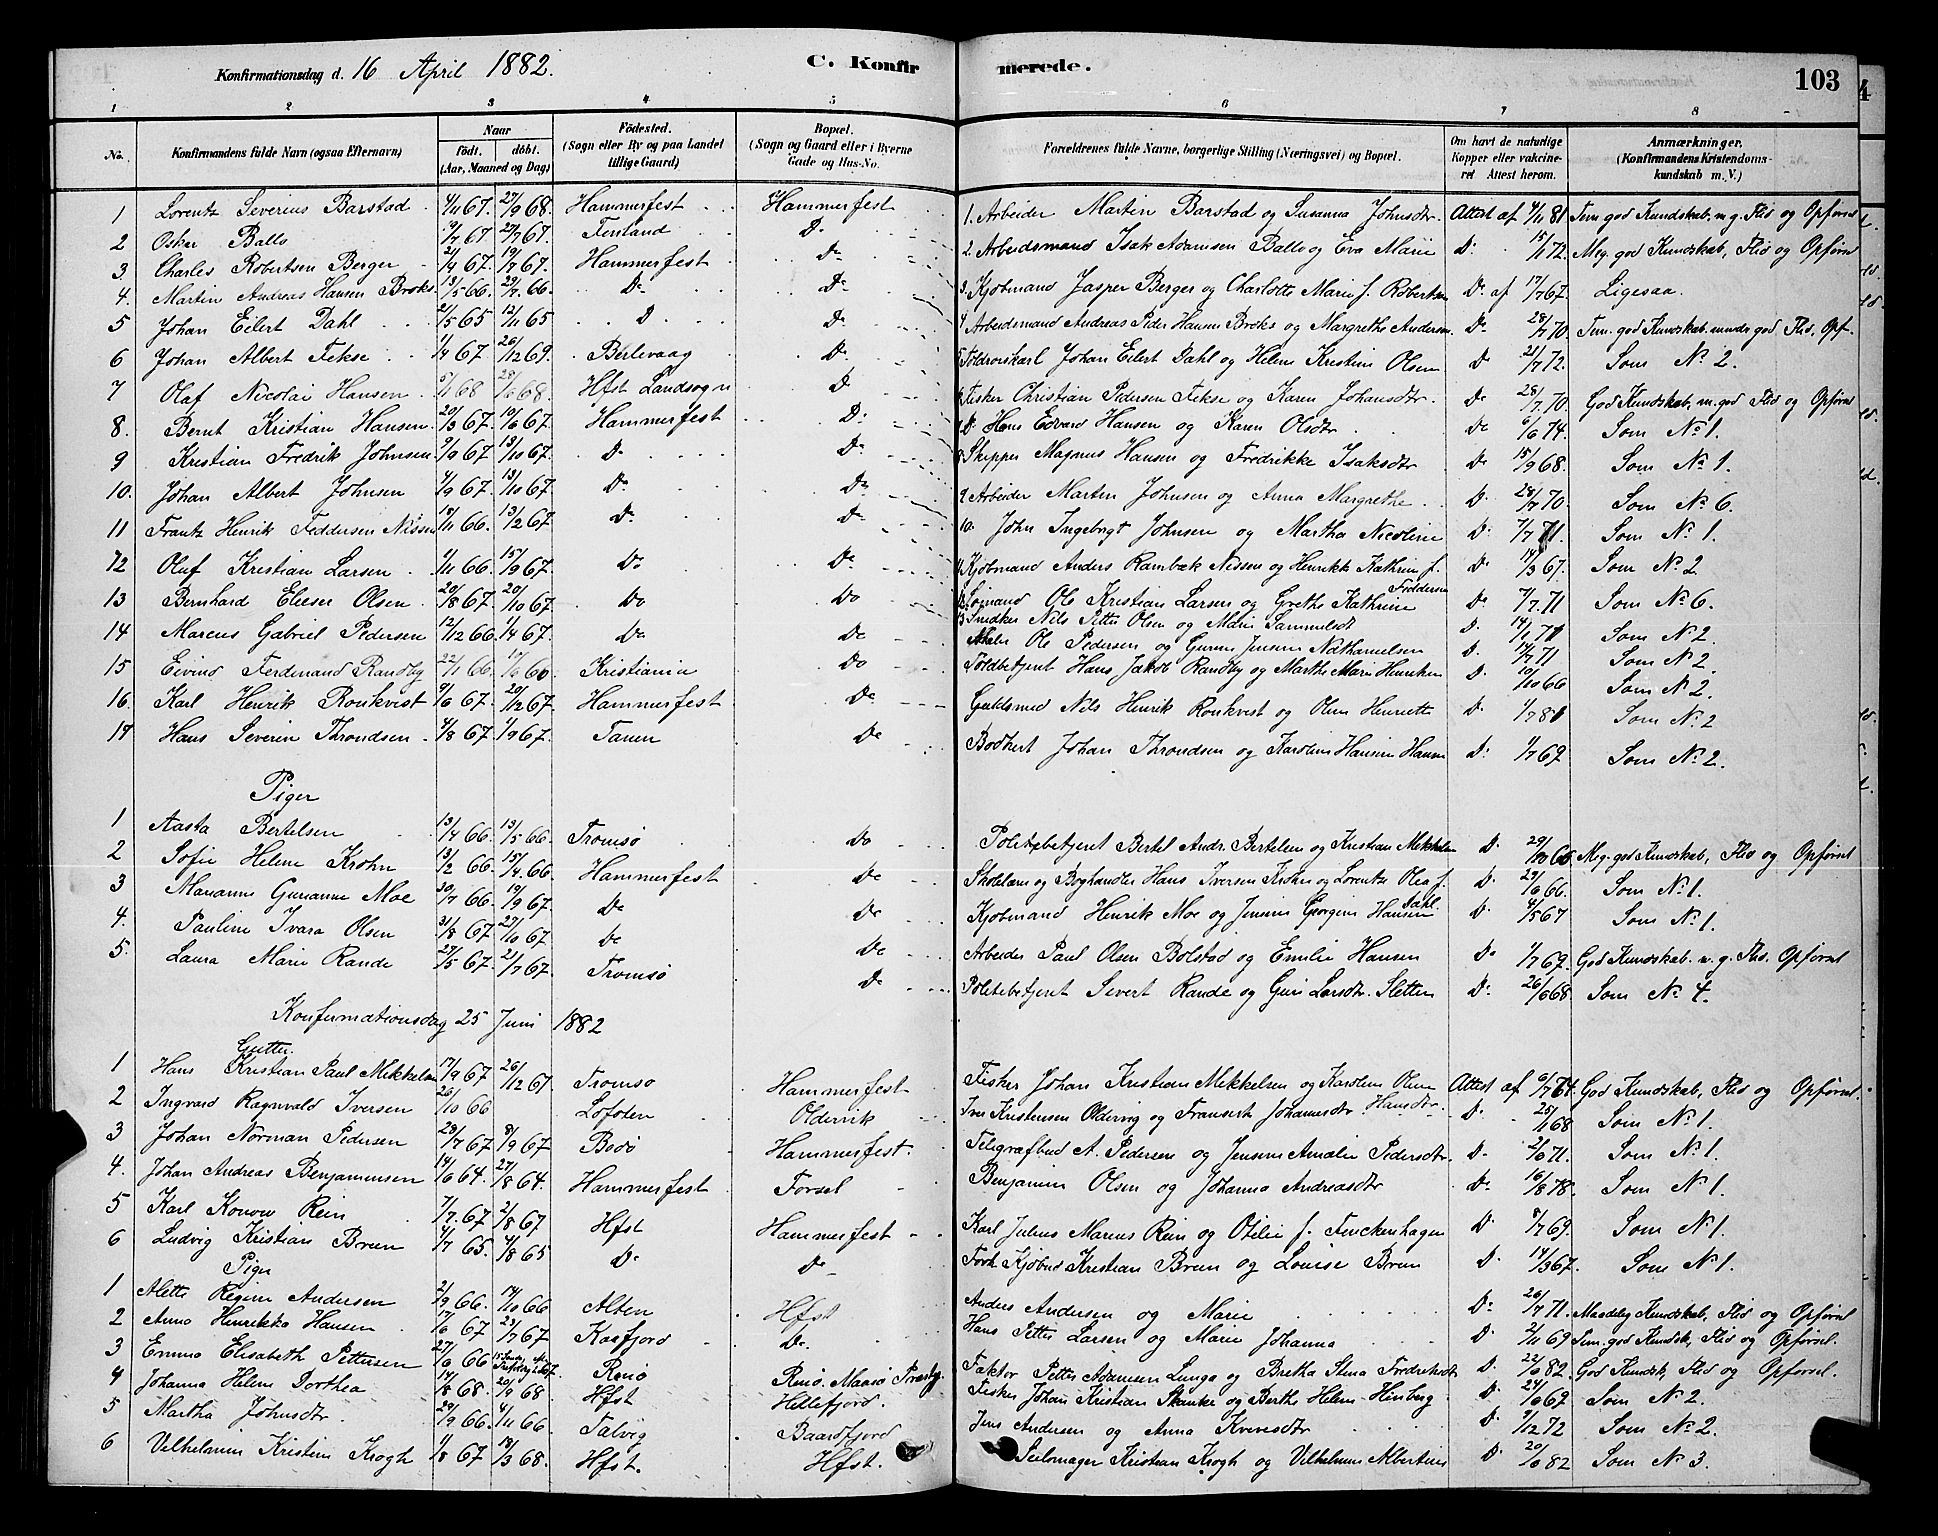 Konfirmationsdag d. 16 April 1882. C. Konfirmerede. 103
1 2 3 4 5 6 7 8
No. Konfirmandens fulde Navn (ogsaa Efternavn) Naar født. døbt. (Aar, Maaned og Dag) Födested. (Sogn eller By og paa Landet tillige Gaard) Bopæl. (Sogn og Gaard eller i Byerne Gade og Hus-No. Forældrenes fulde Navne, borgerlige Stilling (Næringsvei) og Bopæl. Om havt de naturlige Kopper eller vakcineret Attest herom. Anmærkninger. (Konfirmandens Kristendomskundskab m. V.)
1 Lorentz Severius Barstad 4/11 67. 27/9 68. Hammerfest Hammerfest 1. Arbeider Martin Barstad og Susanna Johnsdtr. Attest af 4/11 81 Tem. god Kundskab, m. g. Flid og Opførsel
2 Oskar Ballo 9/7 67 27/7 67. Finland D. 2. Arbeidsmand Isak Adamsen Ballo og Eva Marie D. 15/1 72. Meg. god Kundskab, Flid og Opførsel
3. Charles Robertsen Berger 21/4 67. 19/7 67. Hammerfest Do 3. Kjøbmand Jasper Berger og Charlotte Marie f. Robertsen Do af 17/7 67. Ligesaa.
4. Martin Andreas Hansen Broks 13/5 66. 29/7 66. Do Do 4 Arbeidsmand Andreas Peder Hansen Broks og Margrethe Andersen Do 28/7 70. Tem. god Kundskab. minde god Flid. Opf.
5 Johan Eilert Dahl 21/5 65 12/11 65 D Do 5. Toldroerskarl Johan Eilert Dahl og Helene Kristine Olsen D 21/7 72. Som No 2.
6 Johan Albert Fekse 1/4 67 26/12 69. Berlevaag Do 6. Fisker Christian Pedersen Fekse og Karen Johansdtr. Do 28/7 70. God Kundskab, m. god Flid og Opførsel
7 Olaf Nicolai Hansen 5/1 68 28/6 68. Hfst Landsogn D 7. D. Hans Edvard Hansen og Karen Olsdtr Do 6/6 74. Som No 1.
8. Bernt Kristian Hansen 20/3 67. 10/6 67. Hammerfest D. 8. Skipper Magnus Hansen og Fredrikke Isaksdtr Do 15/9 68. Som No 1.
9 Kristian Fredrik Johnsen 9/9 67 13/10 67. D. Do 9. Arbeider Martin Johnsen og Anna Margrethe D. 28/7 70. Som No 6.
10. Johan Albert Johnsen 4/9 67. 13/10 67. Do Do 10. John Ingebrigt Johnsen og Martha Nicoline D. 7/7 71. Som No 1.
11 Frantz Henrik Feddersen Nissen 18/11 66. 13/2 67. Do Do 11. Kjøbmand Anders Rambæk Nissen og Henrikke Kathrine f. Feddersen Do 14/3 67. Som No 2.
12 Oluf Kristian Larsen 1/11 66. 15/9 67. Do Do 12. Sømand Ole Kristian Larsen og Grethe Kathrine Do 7/7 71 Som No 6.
13 Bernhard Elieser Olsen 26/8 67. 20/10 67. Do Do 13 Smedker Nils Petter Olsen og Maren Sammelsdt D. 14/1 71 Som No 2.
14 Marcus Gabriel Pedersen 12/12 66. 1/4 67. Do Do Ole Pedersen og Jensen Nathanielsen D. 14/7 71 Som No 2
15 Eivind Ferdinand Randby 22/1 66. 17/6 60. Kristiania Do Toldbetjent Hans Jakob Randby og Marthe Marie Henriksen D. 10/10 66 Som No 2.
16. Karl Henrik Ronkvist 9/6 67. 20/12 67. Hammerfest Do Guldsmed Nils Henrik Ronkvist og Oline Henriette D. 1/7 81 Som No 2
17 Hans Severin Throndsen 4/8 67. 1/9 67. Tanen Do Bødkert Johan Throndsen og Karoline Hansine Hansen D. 1/7 69 Som No 2.
Piger
1 Aasta Bertelsen 13/4 66. 13/5 66. Tromsø Do Politibetjent Bertel Andr. Bertelsen og Kristian Mikkelsen D. 29/10 66 Meg. god Kundskab, Flid og Opførsel
2 Sofie Helene Krohn 13/2 66. 15/4 66. Hammerfest Do Skolelærer og Boghandler Hans Iversen Krohn og Lorentze Olea f. Dahl. D. 29/6 66. Som No 1.
3 Marianne Gurianne Moe 30/7 66. 19/9 67. Do Do Kjøbmand Henrik Moe og Jensine Georgine Hansen D. 4/5 67 Som No 1.
4. Pauline Ivara Olsen 31/8 67 27/10 67. Do Do Arbeider Paul Olsen Bolstad og Emilie Hansen Do 1/7 69. God Kundskab. m. g. Flid. Opførsel
5. Laura Marie Rande 27/5 67. 21/7 67. Tromsø Do Politibetjent Sivert Rande og Guri Larsdtr. Sletten D. 26/6 68. Som No 4.
Konfirmationsdag 25 Juni 1882
Gutter.
1 Hans Kristian Paul Mikkelsen 17/9 67 26/12 67. Tromsø Hammerfest Fisker Johan Kristian Mikkelsen og Karoline Oline Hansdtr. Attest af 6/7 74. God Kundskab, Flid og Opførsel.
2 Ingvard Ragnvald Iversen 26/10 66 Lofoten Oldervik Iver Kristensen Oldervig og Fransert Johannesdtr D. 25/1 68 Som No 1.
3 Johan Norman Pedersen 28/7 67 8/9 67 Bodø Hammerfest. Telegrafbud A. Pedersen og Jensine Amalie Pedersdtr. D. 2/6 71. Som No 1.
4. Johan Andreas Benjaminsen 14/6 64. 27/8 64. Hammerfest Forsøl Benjamin Olsen og Johanna Andreasdtr Do 16/8 78. Som No 1.
5 Karl Konow Rein 7/7. 67 2/8 67 Hfst Hammerfest Karl Julius Marius Rein og Otilie f. Finckenhagen D. 8/7 69. Som No 1.
6 Ludvig Kristian Breen 4/7 65. 4/8 65 D. Do Forh. Kjøbmd Kristian Breen og Louise Breen D. 14/3 67. Som No 1.
Piger
1 Alette Regine Andersen 2/9 66. 14/10 66 Alten Hfst Anders Andersen og Marie D. 26/7 71. Maadelig Kundskab, Flid og Opførsel
2 Anna Henrikka Hansen 17/6 67 23/7 67. Kaafjord Do. Hans Petter Larsen og Marie Johanna D. 2/11 69 Tem. god Kundsk, Flid og Opførsel.
3 Emma Elisabeth Pettersen 27/6 66 Renø Renø. Maasø Præstg. Faktor Petter Adamsen Lunga og Bretha Stina Fredriksdt D. 22/6 82 God Kundsk, Flid og Opførsel.
4 Johanna Helene Dorthea 14/8 68. 20/9 68 Hfst Hillefjord. Fisker Johan Kristian Skanke og Berthe Helene Hinberg D. 24/6 67 Som No 2.
5 Martha Johnsdtr. 29/9 66. 4/11 66 Talvig Baardfjord Jens Andersen og Anna Kvensdtr D. 9/12 72 Som No 2.
6 Vilhelmine Kristine Krogh 1/8 67 18/3 68. Hfst. Hfst. Seilmager Kristian Krogh og Vilhelmine Albertine D. 20/6 82 Som No 3.